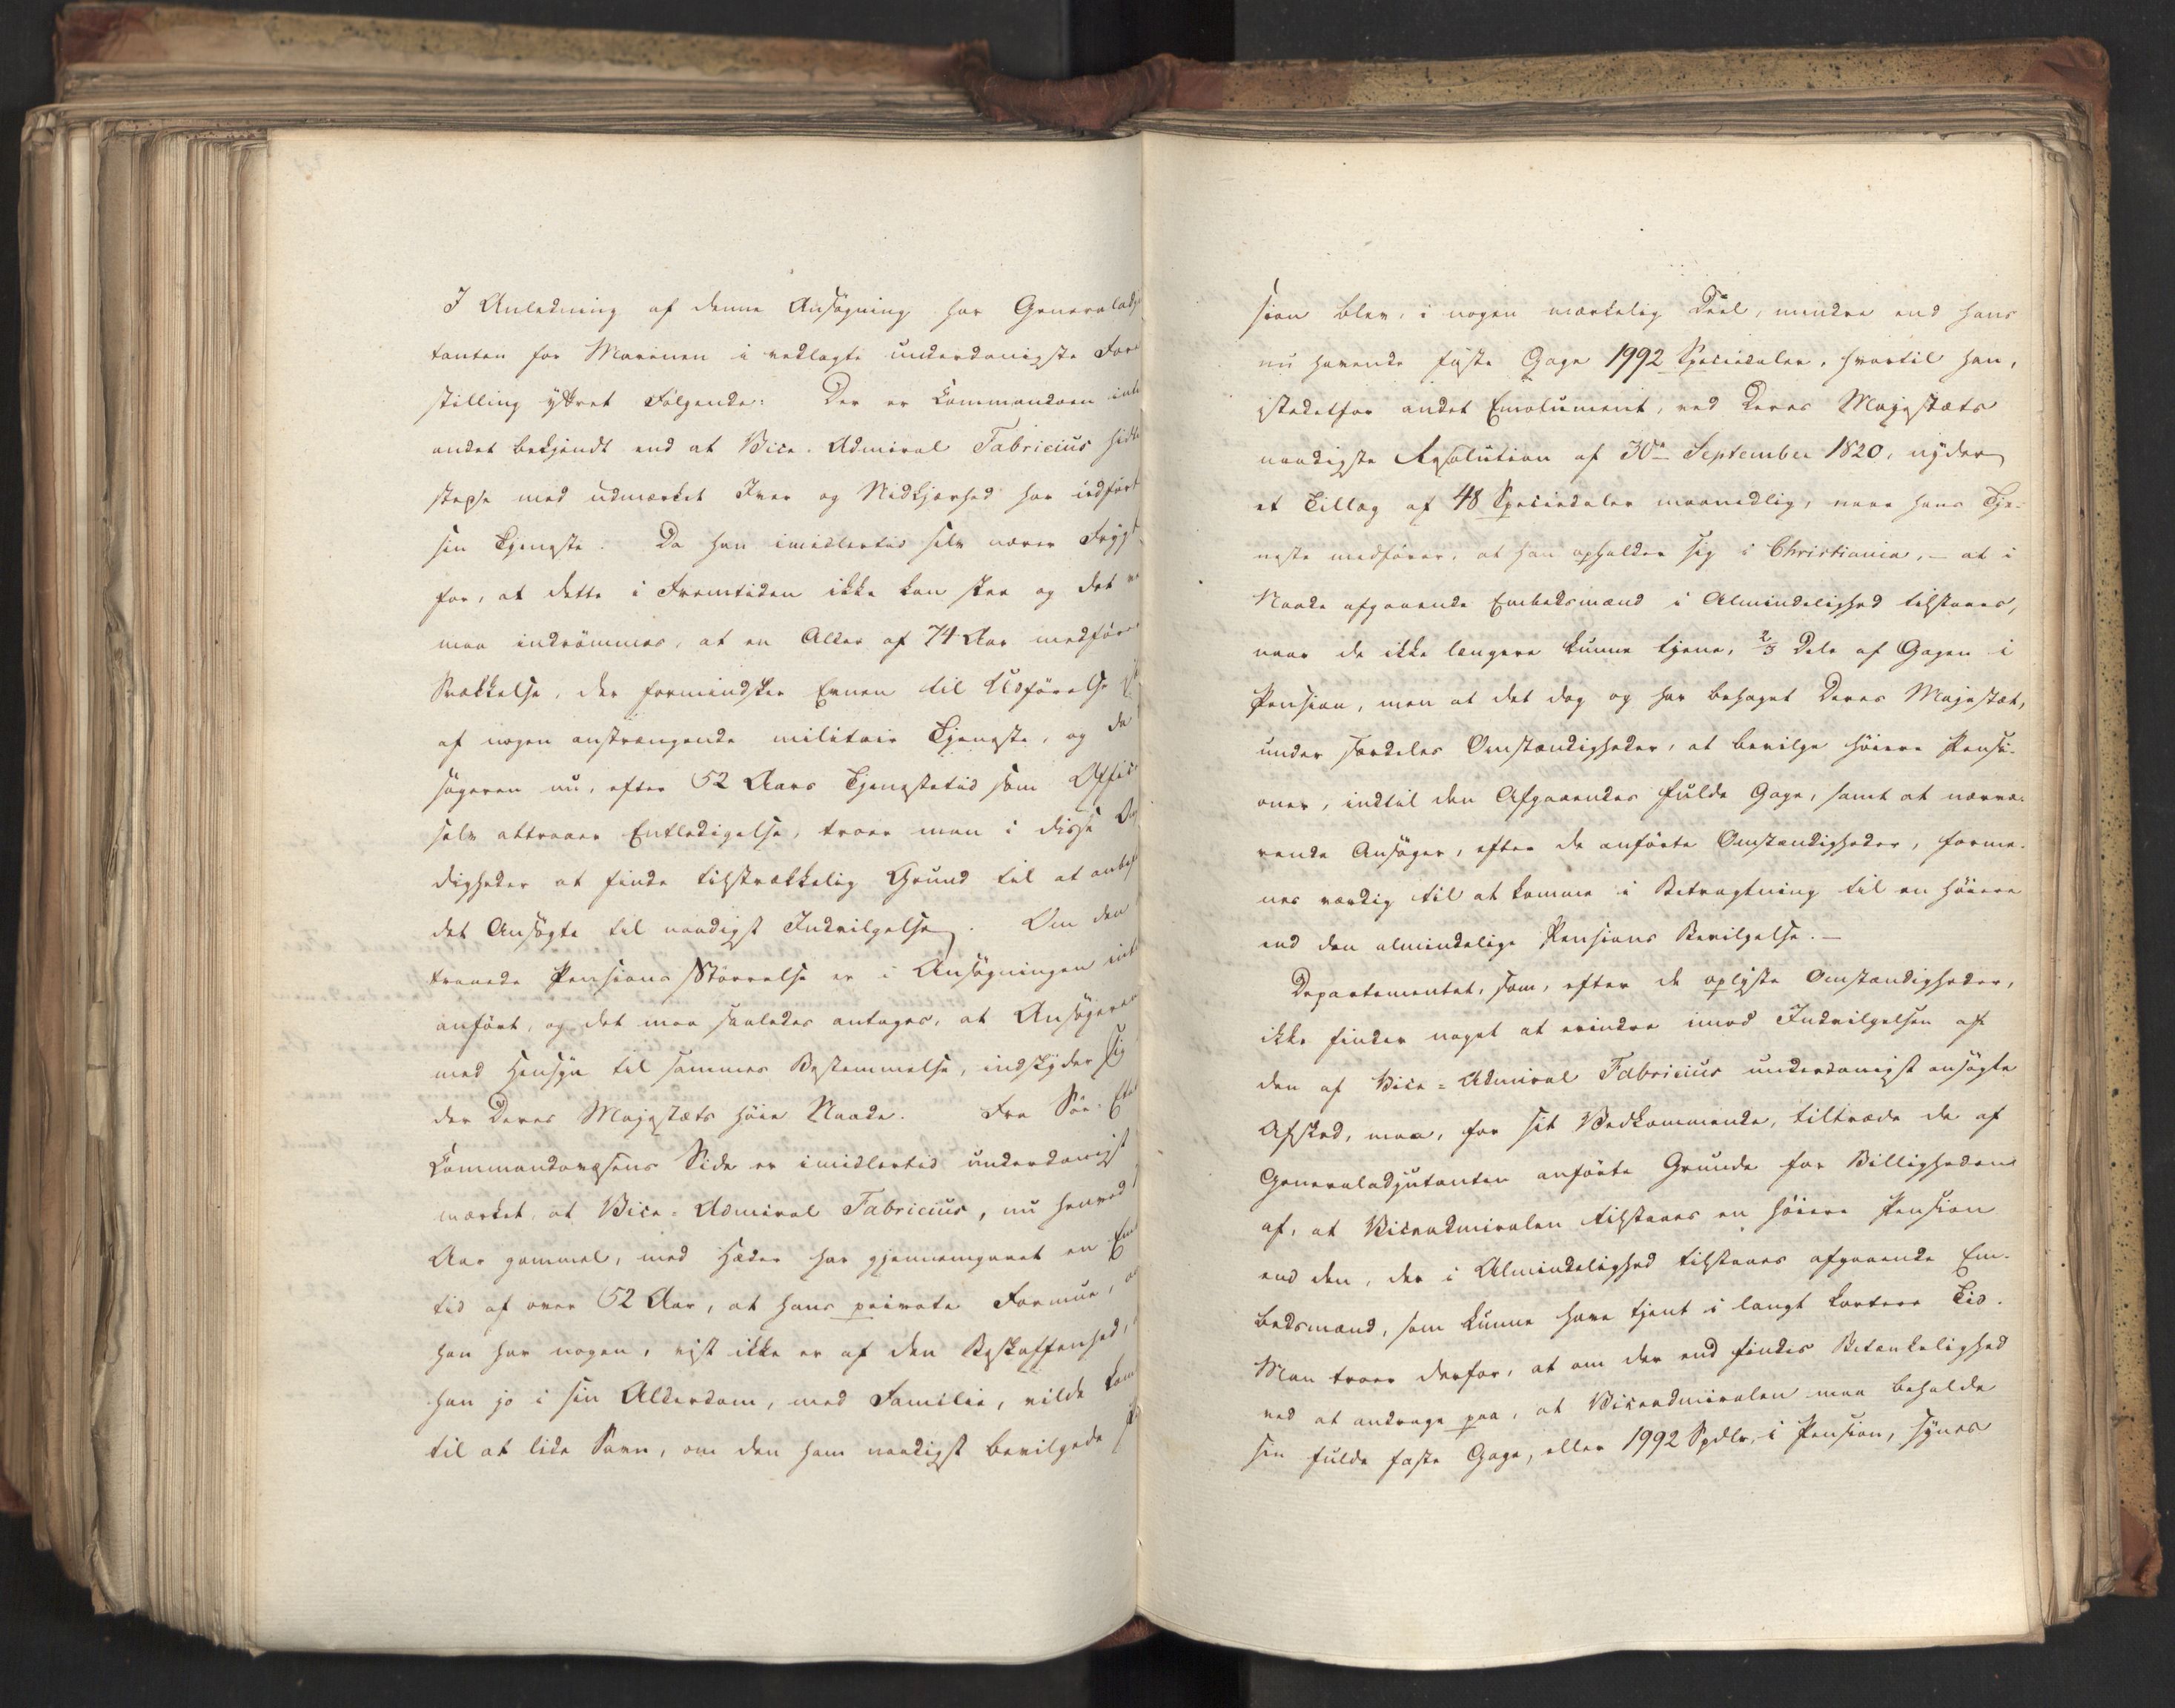 I Anledning af denne Ansøgning har Generaladju
tanten for Marinen i vedlagte underdanigste Fore
stilling yttret Følgende: Der er Commandoen intet
andet bekjendt end at Vice-Admiral Fabricius hidtil
stedse med udmærket Iver og Nidkjærhed har udført
sin Tjeneste. Da han imidlertid selv nærer Frygt
for, at dette i Fremtiden ikke kan skee og det
maa indrømmes, at en Alder af 74 Aar medfører
Svækkelse, der formindsker Evnen til Udførelse
af nogen anstrængende militair Tjeneste, og da
søgeren nu, efter 52 Aars Tjenestetid som Offi
selv attraaer Entledigelse, troer man i disse
digheder at finde tilstrækkelig Grund til at anbef
det Ansøgte til naadigst Indvilgelse. Om den
traaede Pensions Størrelse er i Ansøgningen intet
anført, og det maa saaledes antages, at Ansøgeren
med Hensyn til sammes Bestemmelse, indskyder sig
der Deres Majestæts høie Naade. Fra Søe-Etats
Commandovæsens Side er imidlertid underdanigst
mærket, at Vice-Admiral Fabricius, nu henved
Aar gammel, med Hæder har gjennemgaaet en Em
tid af over 52 Aar, at hans private Formue,
han har nogen, vist ikke er af den Beskaffenhed,
han jo i sin Alderdom, med Familie, vilde kom
til at lide Savn, om den ham naadigst bevilgede
sion blev, i nogen mærkelig Deel, mindre end hans
nu havende faste Gage 1992 Speciedaler, hvortil han,
istedetfor andet Emolument, ved Deres Majestæts
naadigste Resolution af 30te September 1820, nyder
et Tillæg af 48 Speciedaler maanedlig, naar hans Tje-
neste medfører, at han opholder sig i Christiania, – at i
Naade afgaaende Embedsmænd i Almindelighed tilstaaes,
naar de ikke længere kunne tjene, 2/3 Dele af Gagen i
Pension, men at det dog og har behaget Deres Majestæt,
under særdeles Omstændigheder, at bevilge høiere Pensi-
oner, indtil den Afgaaendes fulde Gage, samt at nærvæ-
rende Ansøger, efter de anførte Omstændigheder, forme-
nes værdig til at komme i Betragtning til en høiere
end den almindelige Pensions Bevilgelse. –
Departementet, som, efter de oplyste Omstændigheder,
ikke finder noget at erindre imod Indvilgelsen af
den af Vice-Admiral Fabricius underdanigst ansøgte
Afsked, maa, for sit Vedkommende, tiltræde de af
Generaladjutanten anførte Grunde for Billigheden
af, at Viceadmiralen tilstaaes en høiere Pension
end den, der i Almindelighed tilstaaes afgaaende Em-
bedsmænd, som kunne have tjent i langt kortere Tid.
Man troer derfor, at om der end findes Betænkelighed
ved at andrage paa, at Viceadmiralen maa beholde
sin fulde faste Gage, eller 1992 Spdlr, i Pension, synes